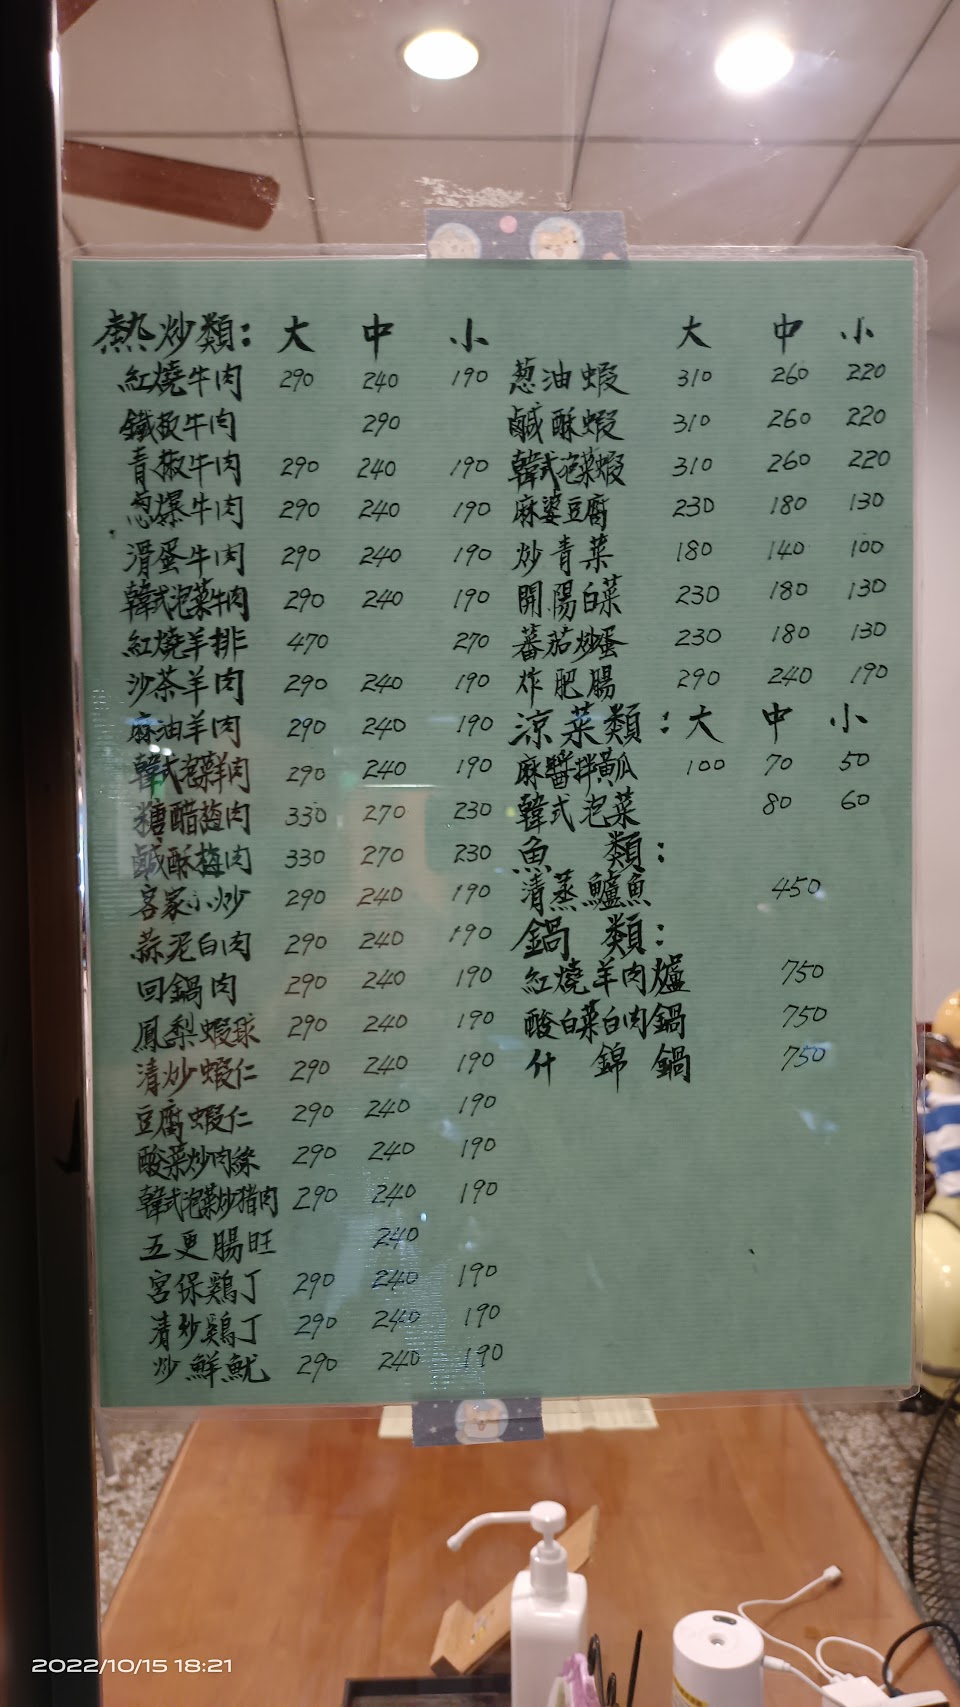 熱炒類: 大 中 小
紅燒牛肉 290 240 190
鐵板牛肉 290
青椒牛肉 290 240 190
蔥爆牛肉 290 240 190
滑蛋牛肉 290 240 190
韓式泡菜牛肉 290 240 190
紅燒羊排 470 270
沙茶羊肉 290 240 190
麻油羊肉 290 240 190
韓式泡菜羊肉 290 240 190
糖醋梅肉 330 270 230
鹹酥梅肉 330 270 230
客家小炒 290 240 190
蒜泥白肉 290 240 190
回鍋肉 290 240 190
鳳梨蝦球 290 240 190
清炒蝦仁 290 240 190
豆腐蝦仁 290 240 190
酸菜炒肉絲 290 240 190
韓式泡菜炒猪肉 290 240 190
五更腸旺 240
宮保鷄丁 290 240 190
清炒鷄丁 290 240 190
炒鮮魷 290 240 190
大 中 小
葱油蝦 310 260 220
鹹酥蝦 310 260 220
韓式泡菜蝦 310 260 220
麻婆豆腐 230 180 130
炒青菜 180 140 100
開陽白菜 230 180 130
蕃茄炒蛋 230 180 130
炸肥腸 290 240 190
涼菜類: 大 中 小
麻醬拌黃瓜 100 70 50
韓式泡菜 80 60
魚類:
清蒸鱸魚 450
鍋類:
紅燒羊肉爐 750
酸白菜白肉鍋 750
什錦鍋 750
2022/10/15 18:21